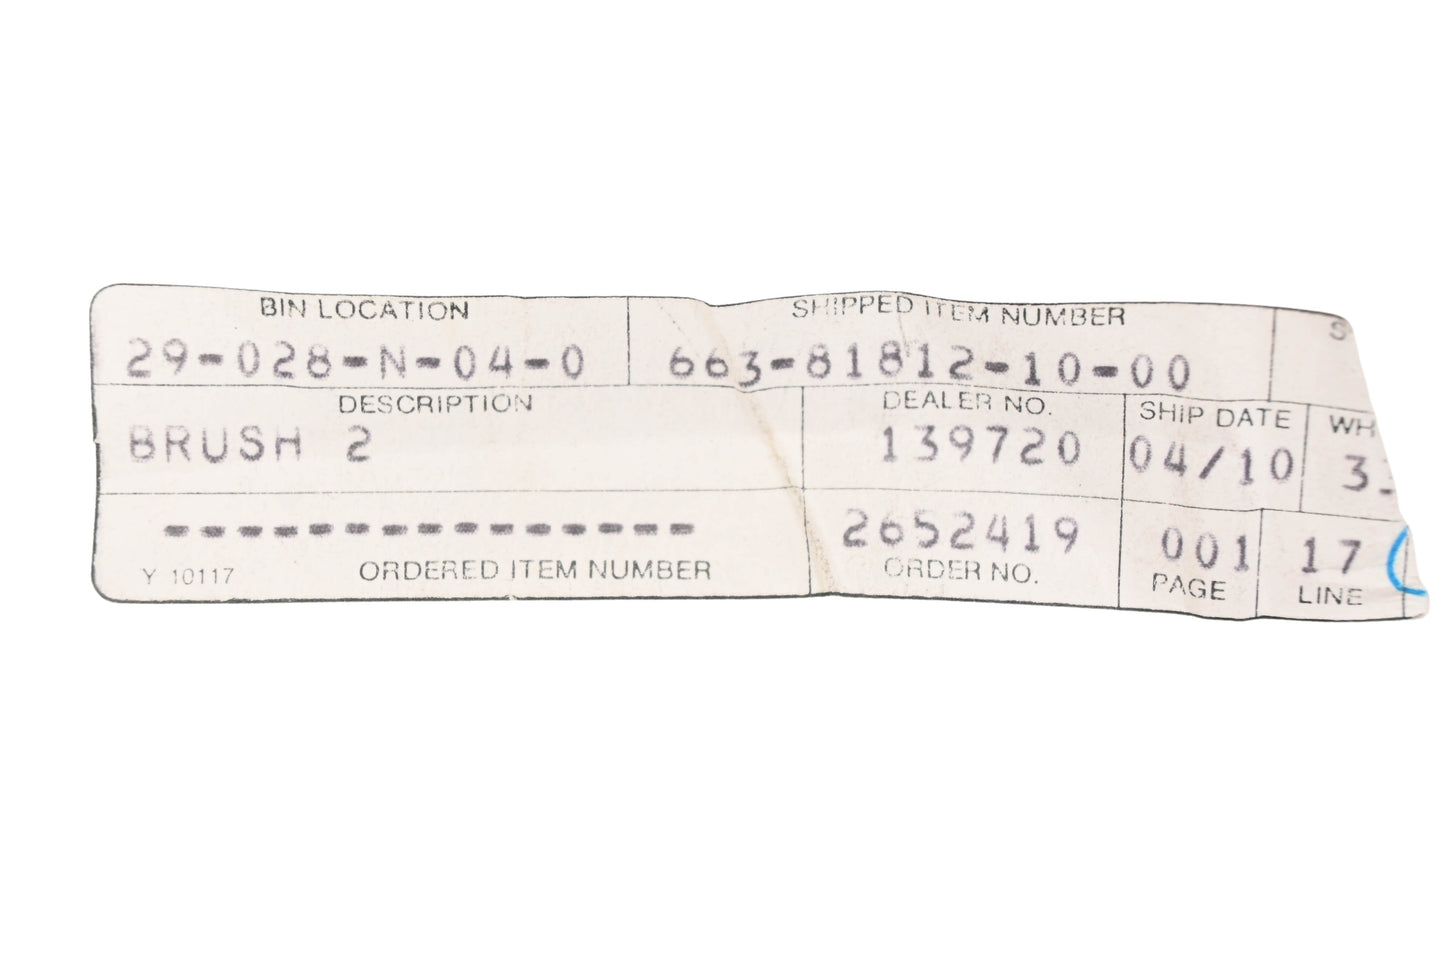 BIN LOCATION SHIPPED ITEM NUMBER S
29-028-N-04-0 663-81812-10-00
DESCRIPTION DEALER NO. SHIP DATE WH
BRUSH 2 139720 04/10 3
-------------- 2652419 001 17
Y 10117 ORDERED ITEM NUMBER ORDER NO. PAGE LINE